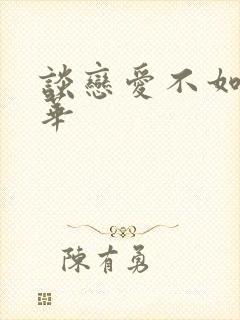 談戀愛不如
華
陳有勇